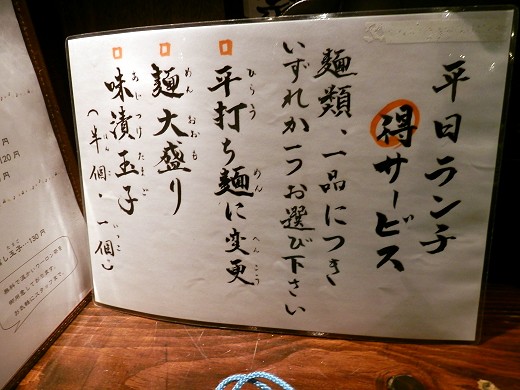 平日ランチ
得サービス
麺類、一品につき
いずれか一つお選び下さい
平打ち麺に変更
ひらう めん へんこう
麺大盛り
めんおおも
味漬玉子
あじつけたまご
(半個・一個)
はんこ いっこ
円
120円
円
し玉子…130円
たまご